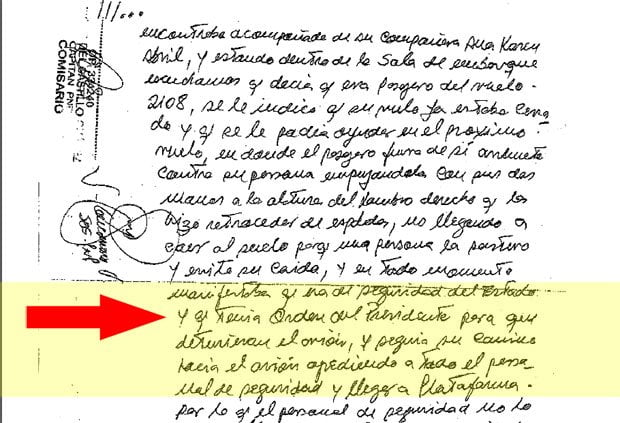 encontraba acompañado de su compañera Ana Karen
Abril, y estando dentro de la Sala de embarque
escuchamos q decia q era pasajero del vuelo
2108, se le indico q su vuelo ya estaba cerra
do y q se le podia ayudar en el proximo
vuelo, en donde el pasajero fuera de sí arremete
contra su persona empujandola con sus dos
manos a la altura del hombro derecho q la
hizo retroceder de espaldas, no llegando a
caer al suelo porq una persona la sostuvo
y evito su caida, y en todo momento
manifestaba q era de seguridad del Estado
y q tenia Orden del Presidente para que
detuvieran el avión, y seguia su camino
hacia el avión agrediendo a todo el perso
nal de seguridad y llegar a Plataforma.
Por lo q el personal de seguridad no lo
DEL CASTILLO
CAPITAN PNP
COMISARIO